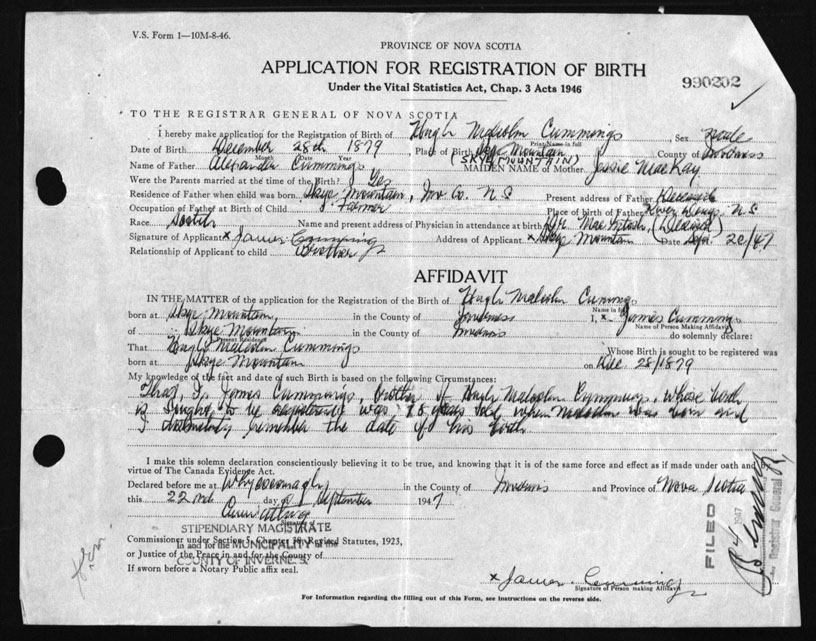 V.S. Form 1—10M-8-46.
PROVINCE OF NOVA SCOTIA
APPLICATION FOR REGISTRATION OF BIRTH
990202
Under the Vital Statistics Act, Chap. 3 Acts 1946
TO THE REGISTRAR GENERAL OF NOVA SCOTIA
I hereby make application for the Registration of Birth of Hugh Malcolm Cummings Sex Male
Print Name in full
Date of Birth December 28th 1879 Place of Birth Skye Mountain County of Inverness
Month Date Year (SKYE MOUNTAIN)
Name of Father Alexander Cummings MAIDEN NAME of Mother Jessie MacKay
Were the Parents married at the time of the Birth? Yes
Residence of Father when child was born Skye Mountain, Inv. Co. N S Present address of Father Deceased
Occupation of Father at Birth of Child Farmer Place of birth of Father River Denys N.S
Race Scotch Name and present address of Physician in attendance at birth Dr. MacIntosh, (Deceased)
Signature of Applicant x James Cummings Address of Applicant Skye Mountain Date Sept. 20/47
Relationship of Applicant to child Brother
AFFIDAVIT
IN THE MATTER of the application for the Registration of the Birth of Hugh Malcolm Cummings
Name in full
born at Skye Mountain, in the County of Inverness I, x James Cummings
Name of Person Making Affidavit
of Skye Mountain in the County of Inverness do solemnly declare:
Present Residence
That Hugh Malcolm Cummings Whose Birth is sought to be registered was
born at Skye Mountain on Dec. 28/1879
My knowledge of the fact and date of such Birth is based on the following Circumstances:
That, I, James Cummings, brother of Hugh Malcolm Cummings, whose birth
is sought to be registered was years old when Malcolm was born and
I distinctly remember the date of his birth
I make this solemn declaration conscientiously believing it to be true, and knowing that it is of the same force and effect as if made under oath and
virtue of The Canada Evidence Act.
Declared before me at Whycocomagh in the County of Inverness and Province of Nova Scotia
this 22nd day of September 1947
Signature of
STIPENDIARY MAGISTRATE
Commissioner under Section 5, Chapter 38, Revised Statutes, 1923,
In and for the MUNICIPALITY of the
or Justice of the Peace in and for the County of
COUNTY OF INVERNESS.
If sworn before a Notary Public affix seal.
x James Cummings
Signature of Person making Affidavit
For Information regarding the filling out of this Form, see instructions on the reverse side.
FILED
1947
Registrar General